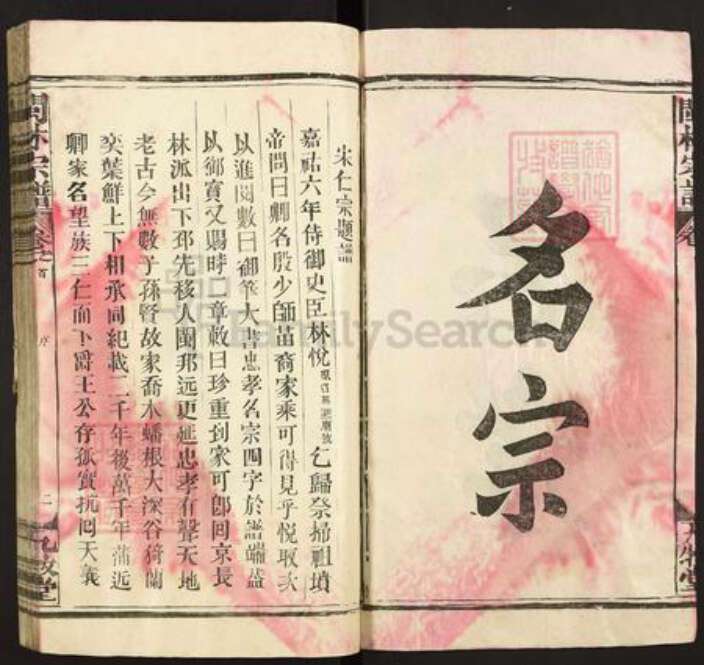 名宗
宋仁宗題譜
嘉祐六年侍御史臣林悅乞歸祭掃祖墳
帝問曰卿名殷少師苗裔家乘可得見乎悅取以
以進閱數日御筆大書忠孝名宗四字於譜端蓋
以御寶又賜詩一章敕曰珍重到家可即回京長
林派出下邳先移人閩邦远更延忠孝有聲天地
老古今無數子孫賢故家喬木蟠根大深谷猗蘭
奕葉鮮上下相承同紀載二千年後萬千年蒲近
卿家名望族三仁面下爵王公存孤實抗回天義
閩林宗譜
卷之首
序
二
九牧堂
FamilySearch